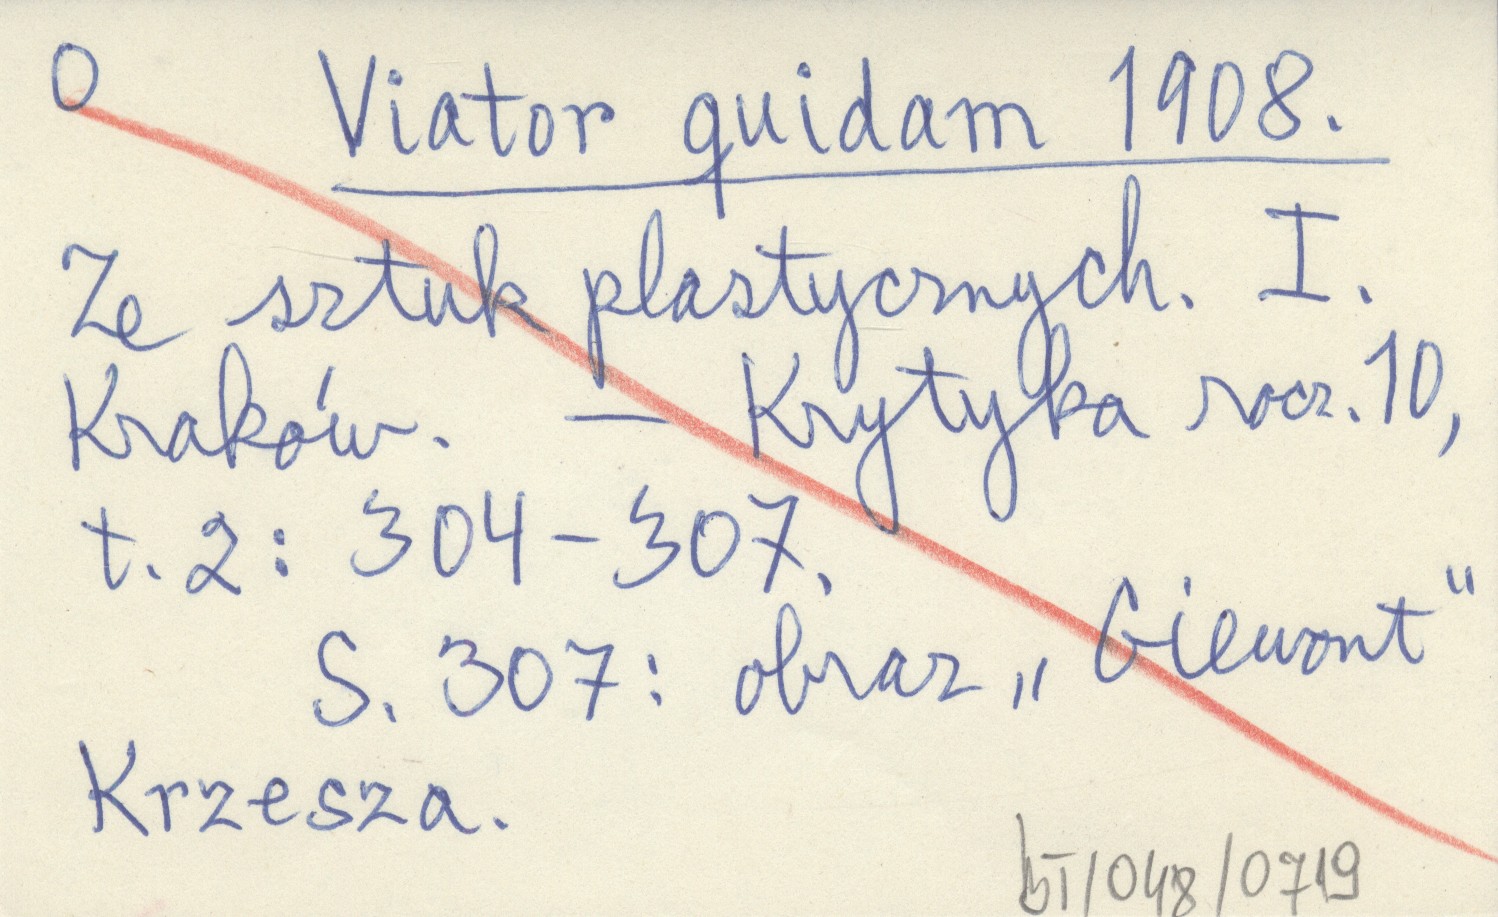 O Viator quidam 1908.
Ze sztuk plastycznych. I.
Kraków. — Krytyka rocz. 10,
t. 2: 304-307.
S. 307: obraz „Giewont"
Krzesza.
bT/048/0719